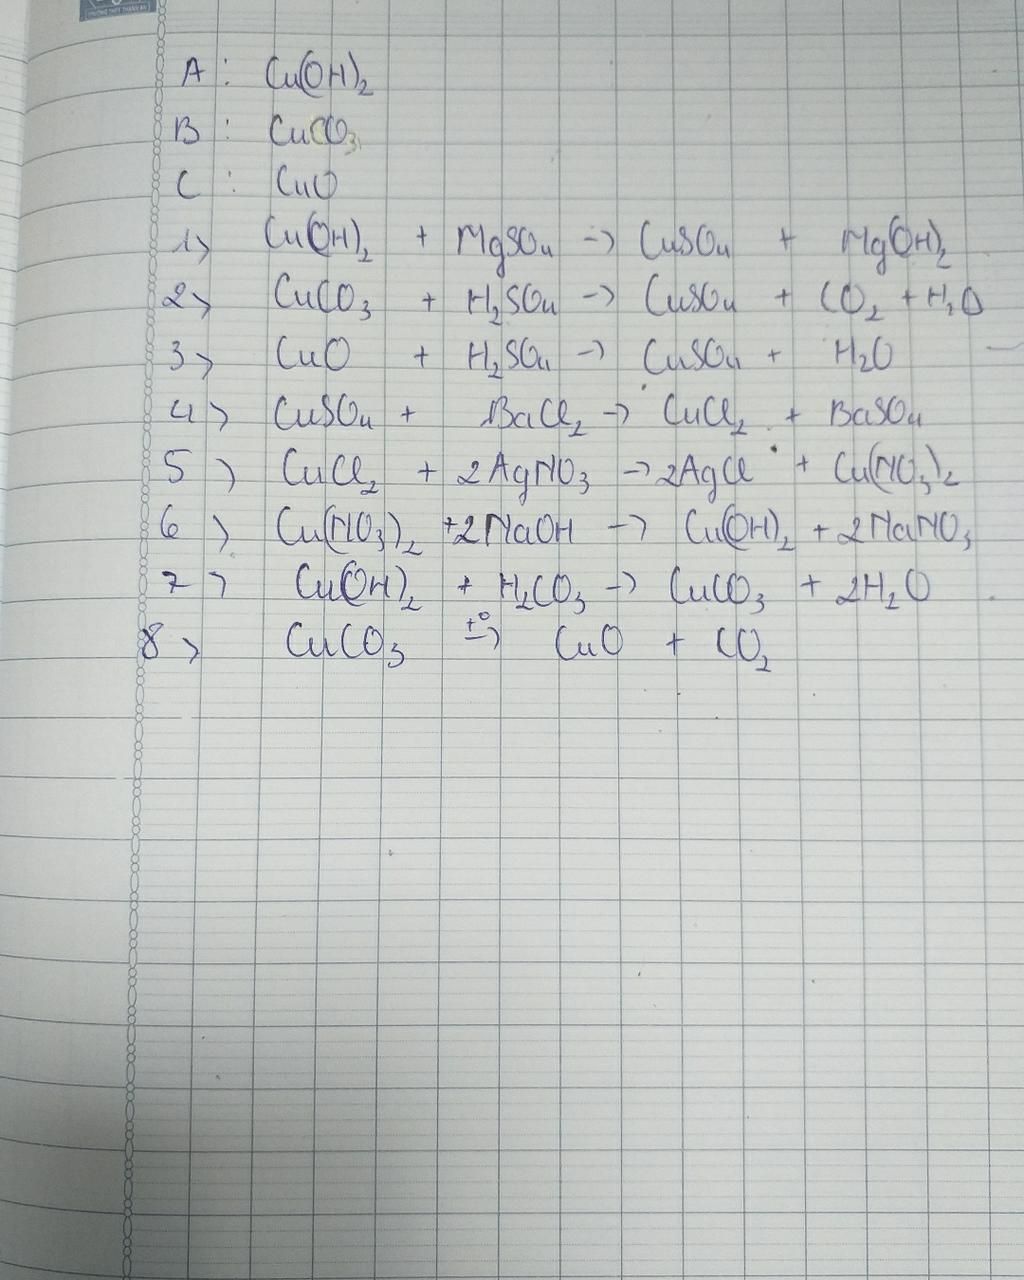 TRƯỜNG THPT THÀNH AN
A : Cu(OH)₂
B : CuCO₃
C : CuO
1) Cu(OH)₂ + MgSO₄ -> CuSO₄ + Mg(OH)₂
2) CuCO₃ + H₂SO₄ -> CuSO₄ + CO₂ + H₂O
3) CuO + H₂SO₄ -> CuSO₄ + H₂O
4) CuSO₄ + BaCl₂ -> CuCl₂ + BaSO₄
5) CuCl₂ + 2AgNO₃ -> 2AgCl + Cu(NO₃)₂
6) Cu(NO₃)₂ + 2NaOH -> Cu(OH)₂ + 2NaNO₃
7) Cu(OH)₂ + H₂CO₃ -> CuCO₃ + 2H₂O
8) CuCO₃ t° -> CuO + CO₂